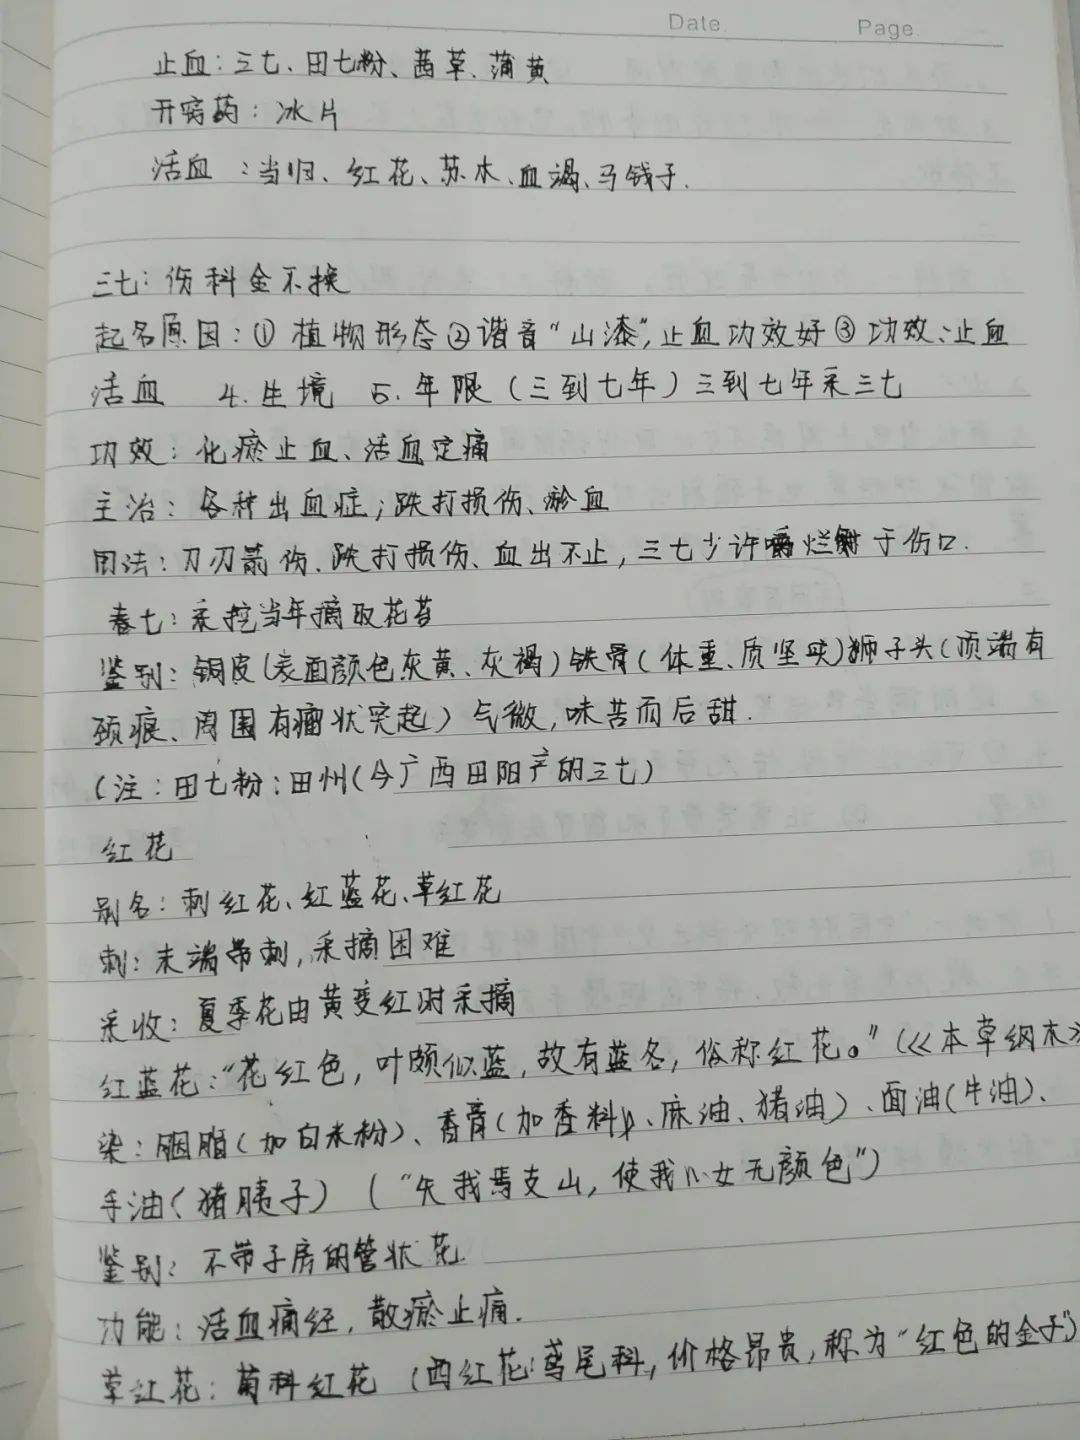 Date. Page.
止血:三七、田七粉、茜草、蒲黄
开窍药:冰片
活血:当归、红花、苏木、血竭、马钱子.
三七:伤科金不换
起名原因:①植物形态②谐音"山漆",止血功效好③功效:止血
活血 4.生境 5.年限(三到七年)三到七年采三七
功效:化瘀止血、活血定痛
主治:各种出血症;跌打损伤、瘀血
用法:刀刃箭伤、跌打损伤、血出不止,三七少许嚼烂 于伤口.
春七:采挖当年摘取花苔
鉴别:铜皮(表面颜色灰黄、灰褐)铁骨(体重、质坚实)狮子头(顶端有
颈痕、周围有瘤状突起)气微,味苦而后甜.
(注:田七粉:田州(今广西田阳产的三七)
红花
别名:刺红花、红蓝花、草红花
刺:末端带刺,采摘困难
采收:夏季花由黄变红时采摘
红蓝花:"花红色,叶颇似蓝,故有蓝名,俗称红花。"(《本草纲木》
染:胭脂(加白米粉)、香膏(加香料)、麻油、猪油)、面油(牛油)、
手油(猪胰子)("失我焉支山,使我 女无颜色")
鉴别:不带子房的管状花.
功能:活血痛经,散瘀止痛.
草红花:菊科红花(西红花:鸢尾科,价格昂贵,称为"红色的金子")